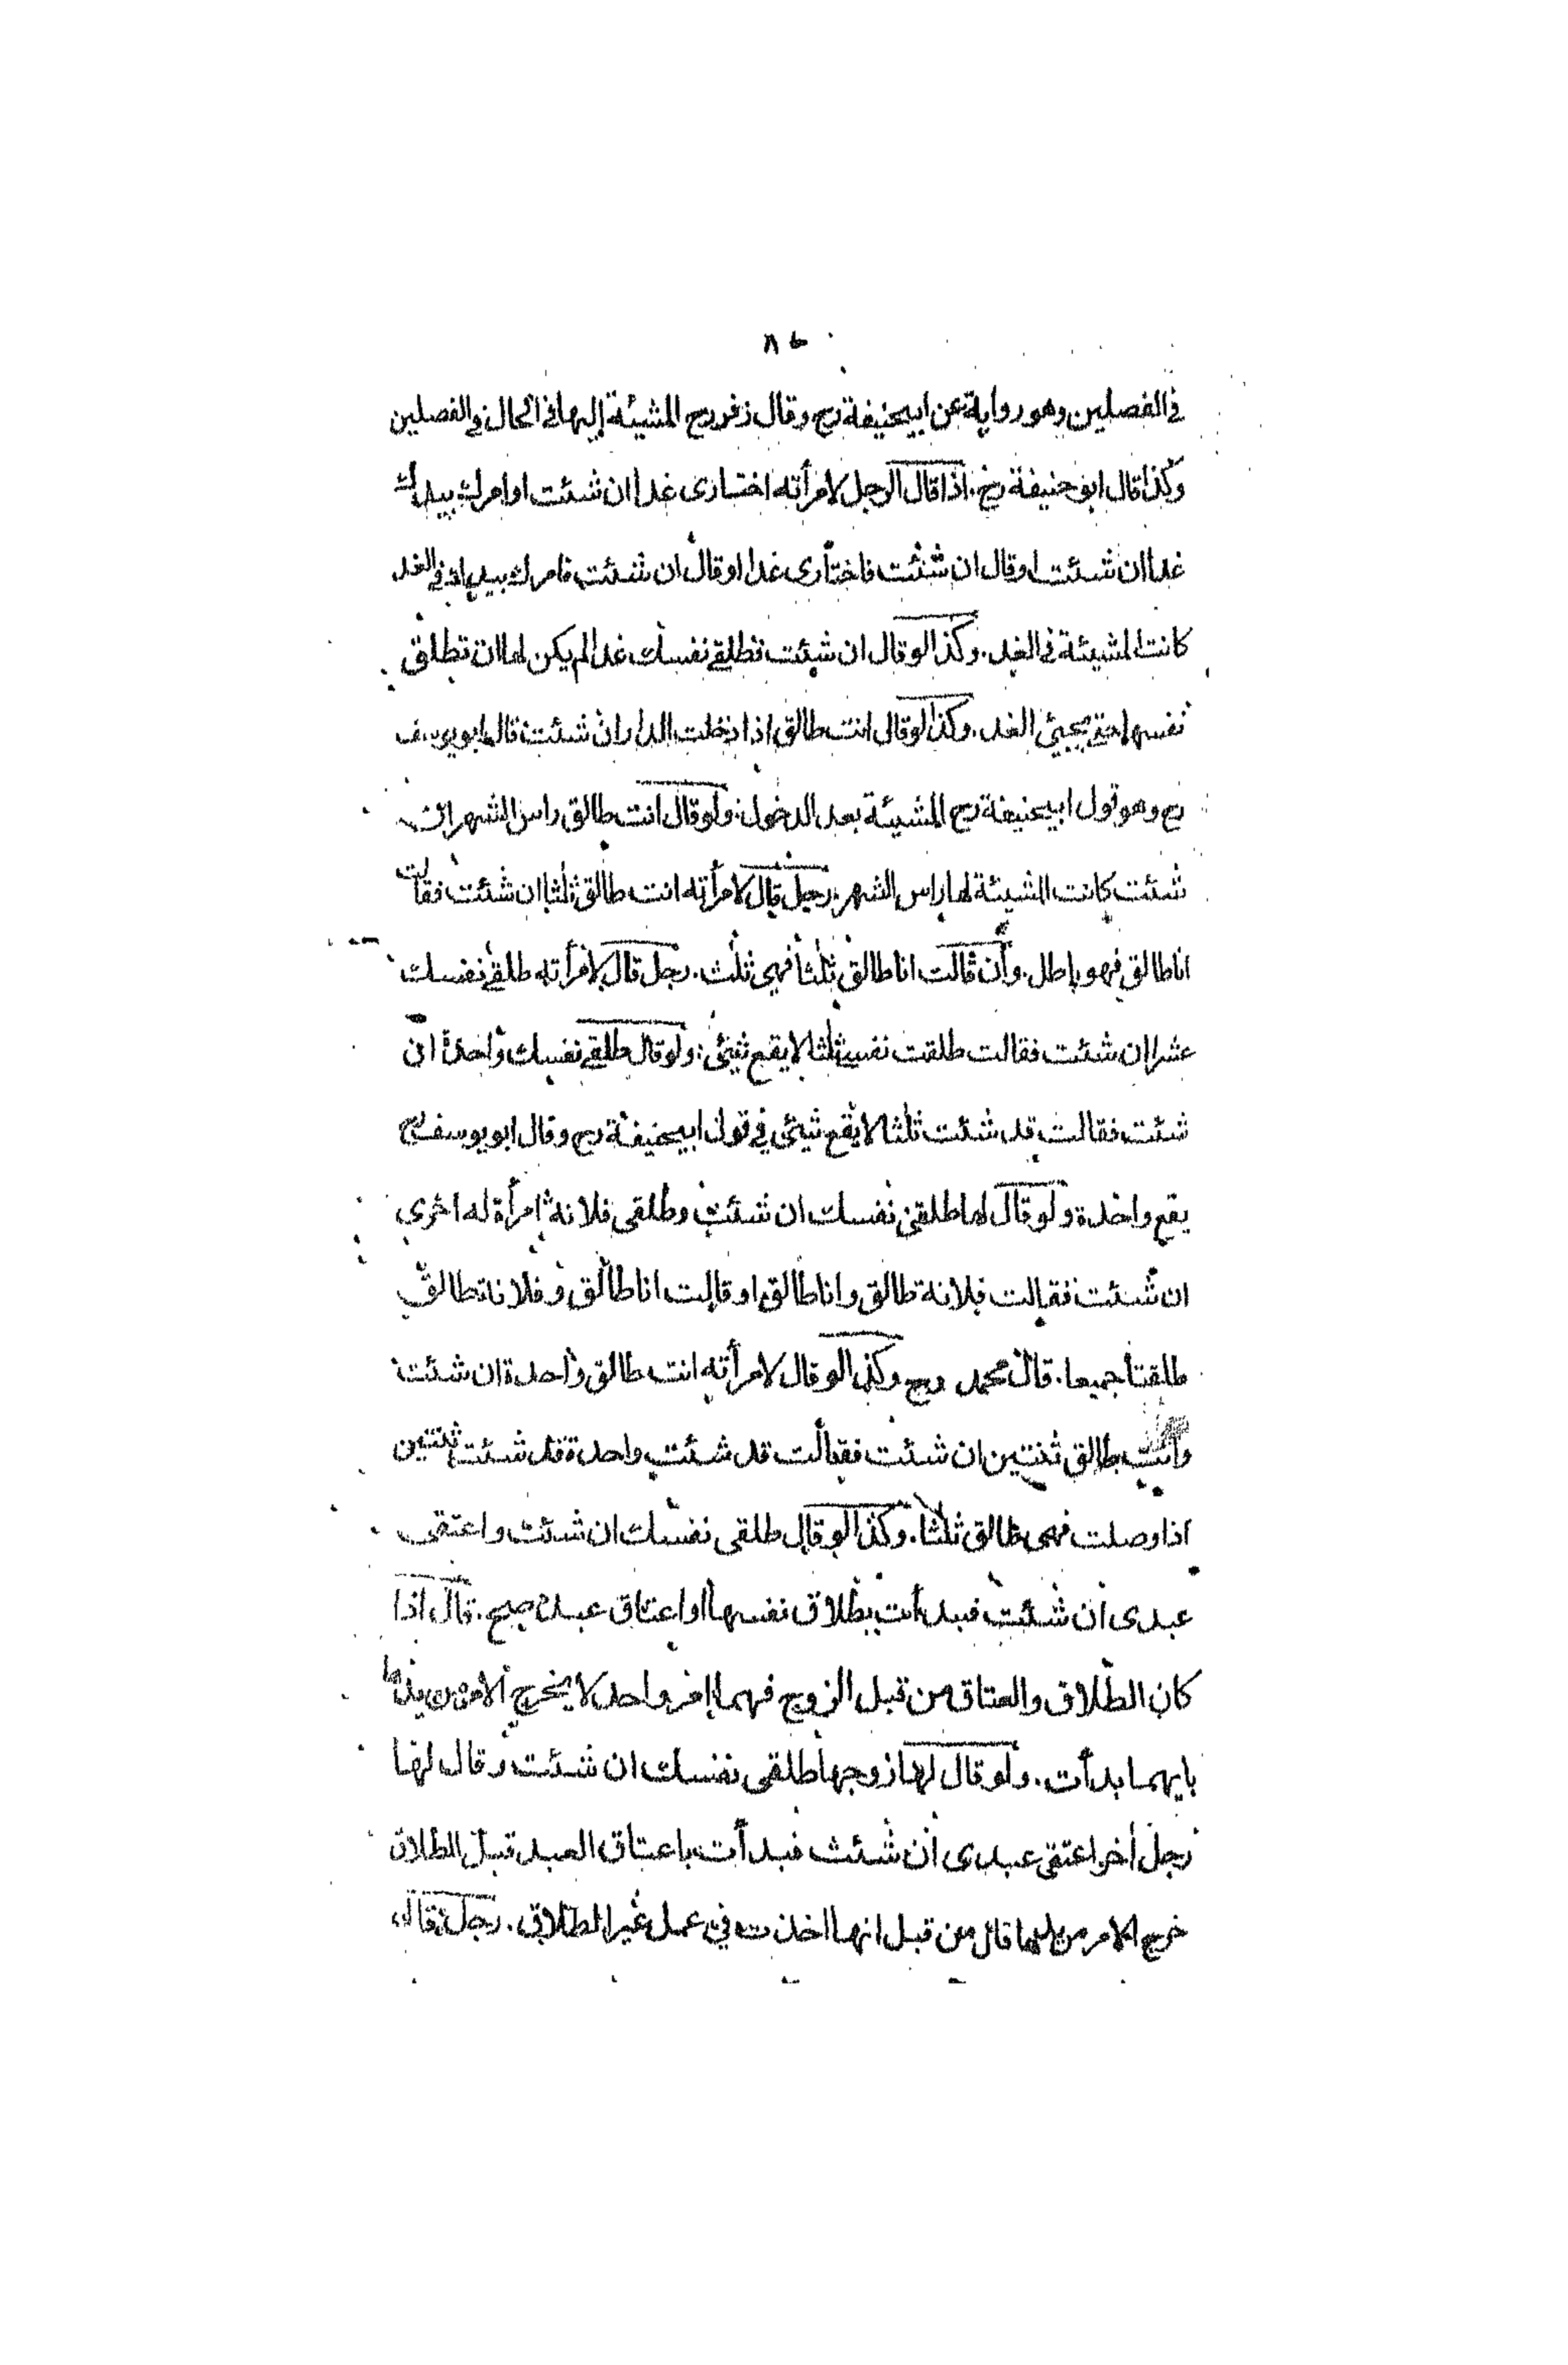 ٨٦
في الفصلين وهو رواية عن ابيحنيفة رح وقال زفر رح المشيئة إليها في الحال في الفصلين
وكذا قال ابو حنيفة رح. اذا قال الرجل لامرأته اختارى غدا ان شئت او امرك بيدك
غدا ان شئت او قال ان شئت فاختارى غدا او قال ان شئت فامرك بيدك في الغد
كانت المشيئة في الغد. وكذا لو قال ان شئت فطلقے نفسك غدا لم يكن لها ان تطلق
نفسها حتے يجيئ الغد. وكذا لو قال انت طالق اذا دخلت الدار ان شئت قال ابو يوسف
رح وهو قول ابيحنيفة رح المشيئة بعد الدخول. ولو قال انت طالق راس الشهر ان
شئت كانت المشيئة لها راس الشهر. رجل قال لامرأته انت طالق ثلثا ان شئت فقالت
انا طالق فهو باطل. وان قالت انا طالق ثلثا فهي ثلث. رجل قال لامرأته طلقے نفسك
عشرا ان شئت فقالت طلقت نفسے ثلثا لا يقع شيئ. ولو قال طلقے نفسك واحدة ان
شئت فقالت قد شئت ثلثا لا يقع شيئ في قول ابيحنيفة رح وقال ابو يوسف رح
يقع واحدة ولو قال لها طلقي نفسك ان شئت وطلقى فلانة امرأة له اخرى
ان شئت فقالت فلانة طالق وانا طالق او قالت انا طالق وفلانة طالق
طلقتا جميعا. قال محمد رح وكذا لو قال لامرأته انت طالق واحدة ان شئت
وانت طالق ثنتين ان شئت فقالت قد شئت واحدة قد شئت ثنتين
اذا وصلت فهى طالق ثلثا. وكذا لو قال طلقى نفسك ان شئت واعتقى
عبدى ان شئت فبدأت بطلاق نفسها او اعتاق عبده صح. قال اذا
كان الطلاق والعتاق من قبل الزوج فهما امر واحد لا يخرج الامر من يدها
بايهما بدأت. ولو قال لها زوجها طلقى نفسك ان شئت وقال لها
رجل أخر اعتقى عبدى ان شئت فبدأت باعتاق العبد قبل الطلاق
خرج الامر من يدها قال من قبل انها اخذت في عمل غير الطلاق. رجل قال